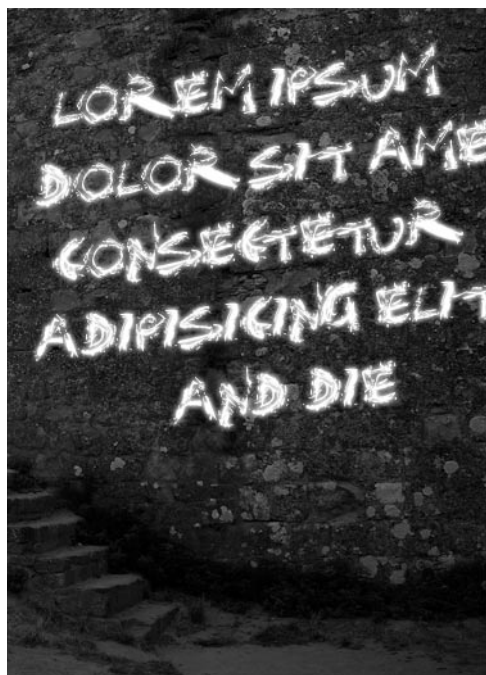 LOREM IPSUM
DOLOR SIT AME
CONSECTETUR
ADIPISICING ELIT
AND DIE